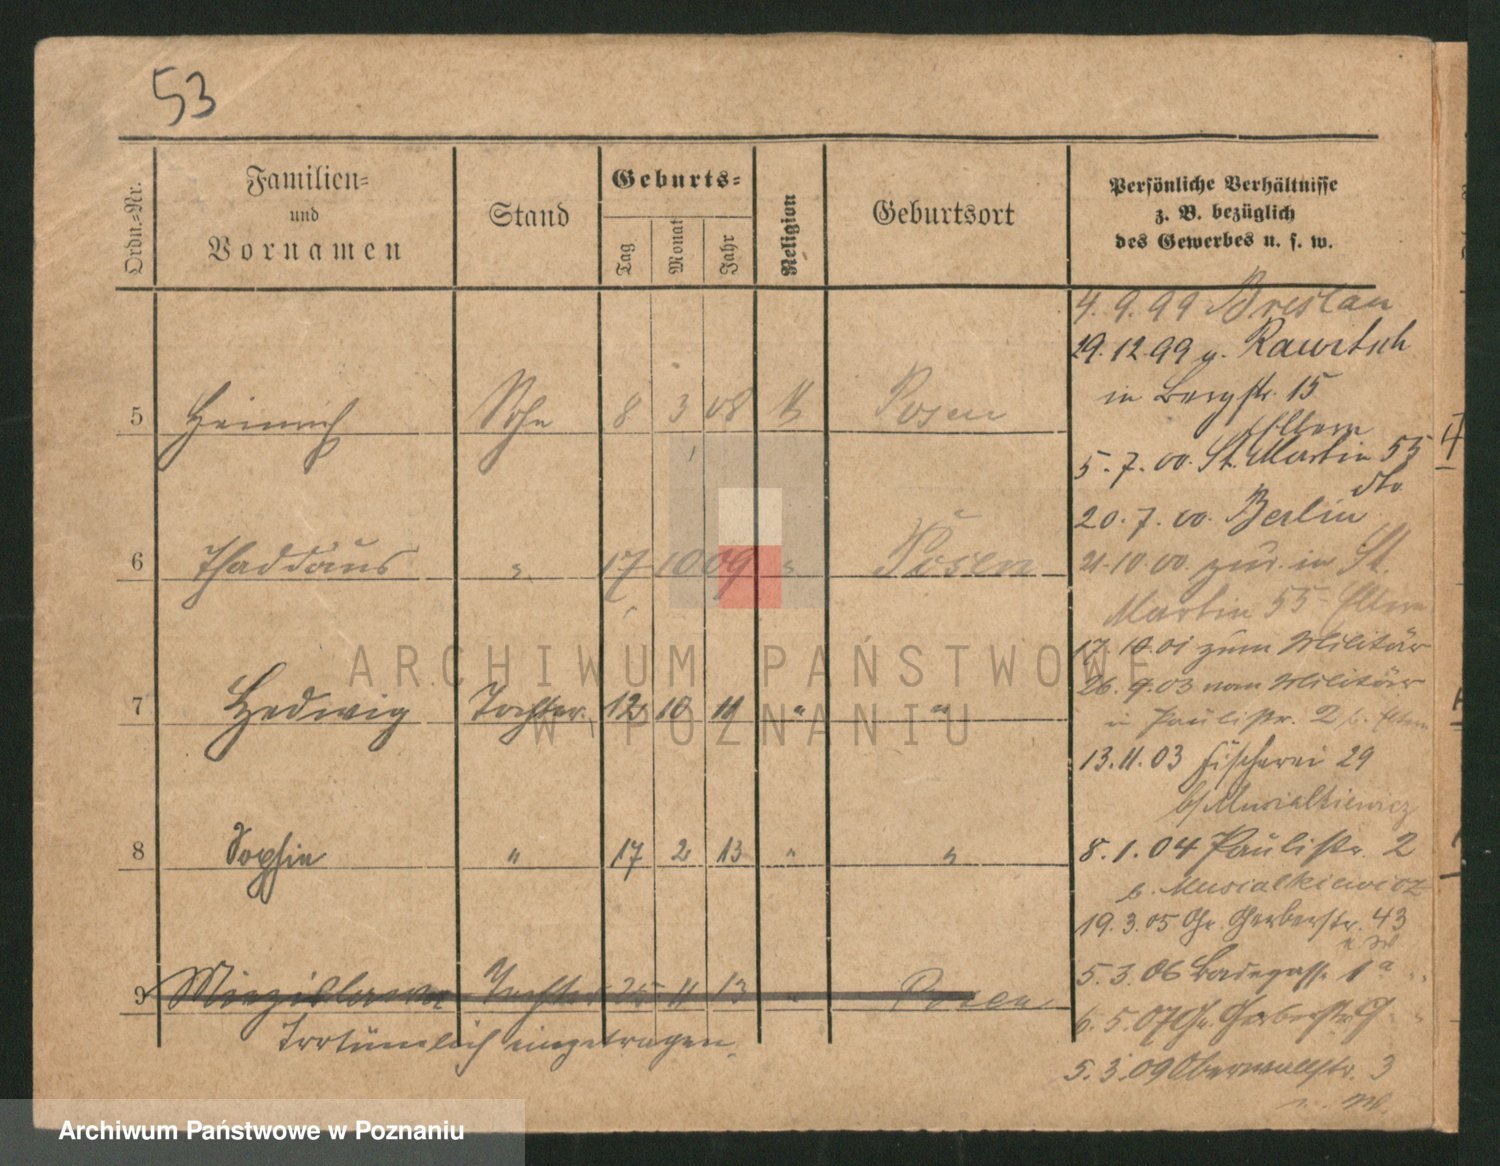 53
Ordn.=Nr.
Familien=
und
Vornamen
Stand
Geburts=
Tag
Monat
Jahr
Religion
Geburtsort
Persönliche Verhältnisse
z. B. bezüglich
des Gewerbes u. s. w.
5 Heinrich Sohn 8 3 08 k Posen
6 Thaddäus " 17 10 09 " Posen
7 Hedwig Tochter 12 10 11 " "
8 Sophie " 17 2 13 " "
9 Miezislawa Tochter 25 11 13 " Posen
Irrtümlich eingetragen.
4. 9. 99 Breslau
29. 12. 99 v. Rawitsch
in Bergstr. 15
Eltern
5. 7. 00. St. Martin 55
dto
20. 7. 00. Berlin
21. 10. 00. zur. in St.
Martin 55 Eltern
17. 10. 01 zum Militär
26. 9. 03 vom Militär
in Paulistr. 2 b. Eltern
13. 11. 03 Fischerei 29
b/ Musialkiewicz
8. 1. 04 Paulistr. 2
b. Musialkiewicz
19. 3. 05 Gr. Gerberstr. 43
5. 3. 06 Badegasse 1a
6. 5. 07 Gr. Gerberstr.
5. 3. 09 Oberwallstr. 3
ARCHIWUM PAŃSTWOWE
W POZNANIU
Archiwum Państwowe w Poznaniu